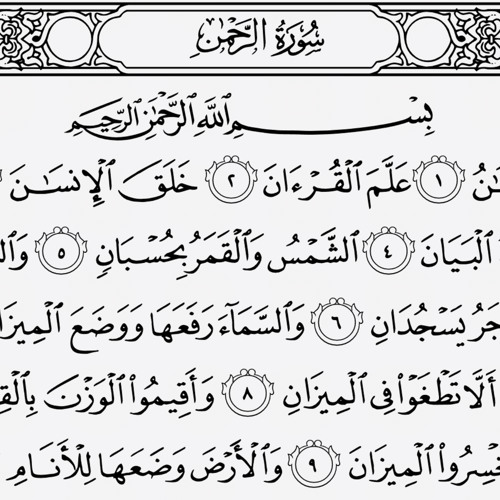 سُورَةُ الرَّحْمَٰن
بِسْمِ اللَّهِ الرَّحْمَٰنِ الرَّحِيمِ
١ عَلَّمَ ٱلْقُرْءَانَ ٢ خَلَقَ ٱلْإِنسَـٰنَ
ٱلْبَيَانَ ٤ ٱلشَّمْسُ وَٱلْقَمَرُ بِحُسْبَانٍ ٥
يَسْجُدَانِ ٦ وَٱلسَّمَآءَ رَفَعَهَا وَوَضَعَ
أَلَّا تَطْغَوْا۟ فِى ٱلْمِيزَانِ ٨ وَأَقِيمُوا۟ ٱلْوَزْنَ
ٱلْمِيزَانَ ٩ وَٱلْأَرْضَ وَضَعَهَا لِلْأَنَامِ